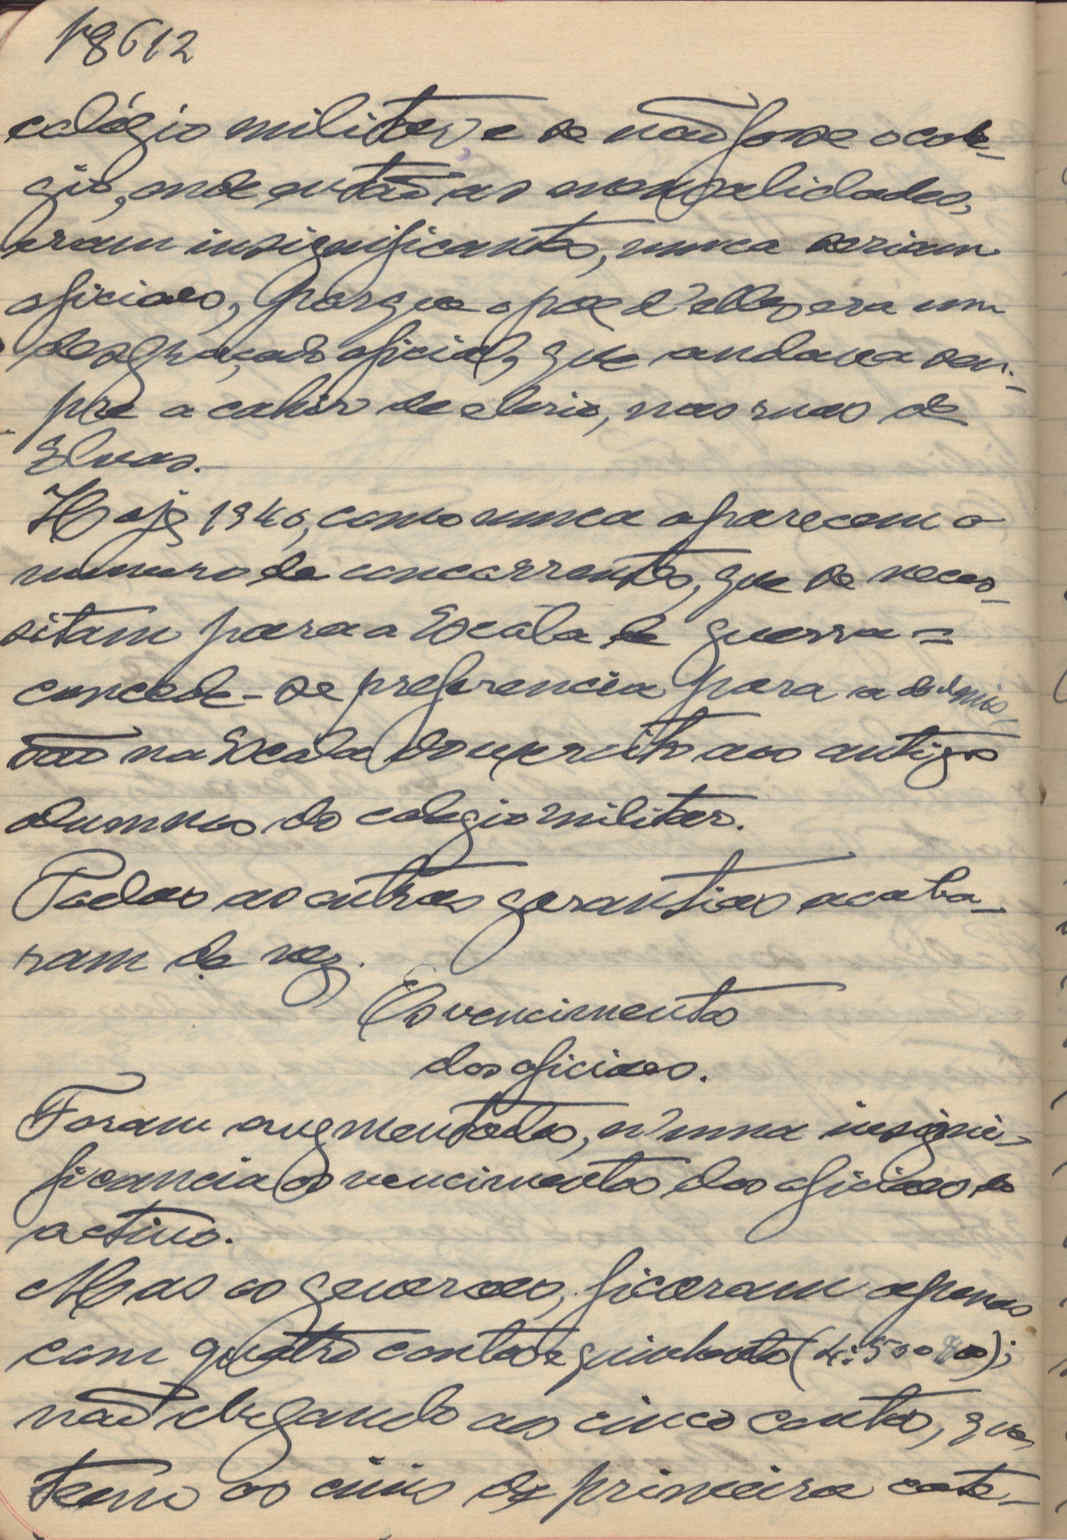 18612
colégio militar, e se não fosse o cole-
gio, onde então as mensalidades,
eram insignificantes, nunca seriam
oficiaes, porque o pae d'elles era um
desgraçado oficial, que andava sem-
pre a cahir de ebrio, nas ruas de
Elvas.
Hoje 1940, como nunca aparecem o
numero de concorrentes, que se neces-
sitam para a Escola de guerra =
concede-se preferencia para a admis-
são na Escola do exercito aos antigos
alumnos do colegio militar.
Todas as outras garantias acaba-
ram de vez.
Os vencimentos
dos oficiaes.
Foram augmentados, n'uma insigni-
ficancia os vencimentos dos oficiaes do
activo.
Mas os generaes, ficaram apenas
com quatro contos e quinhentos (4:500$00);
não chegando aos cinco contos, que
teem os civis de primeira cate-